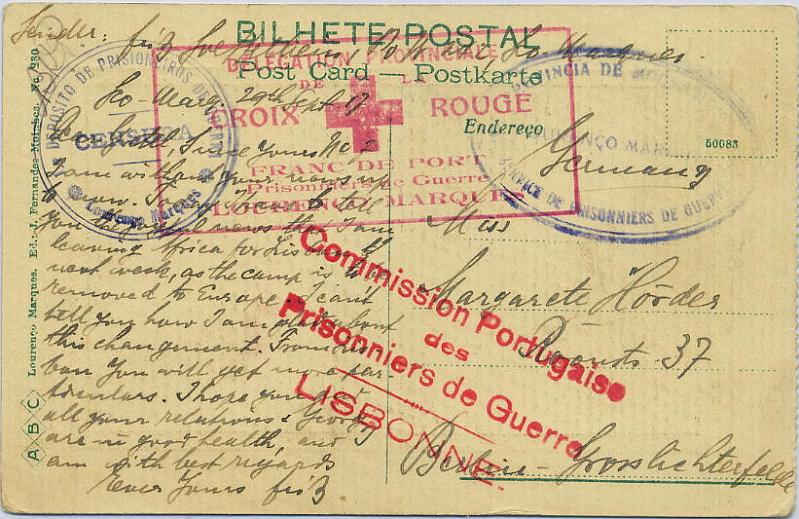 Sender: Fritz P.O.W. Lço Marques.
BILHETE POSTAL
Post Card — Postkarte
Endereço
50083
DÉLÉGATION PROVINCIALE
DE LA
CROIX ROUGE
FRANC DE PORT
Prisonniers de Guerre
LOURENÇO MARQUES
DEPOSITO DE PRISIONEIROS DE GUERRA
CENSURA
Lourenço Marques
PROVINCIA DE
LOURENÇO MARQUES
SERVICE DE PRISONNIERS DE GUERRE
Lço-Marq. 29th Sept. 17
Dear Gretel, Since Yours No 2
I am without your news up
to now. To-day I have to tell
You the joyful news that I am
leaving Africa for Lisbon the
next week, as the camp is
removed to Europe. I can't
tell you how I am glad about
this changement. From Lis-
bon You will get more par-
ticulars. I hope you and
all your relations & Georg
are in good health, and
am with best regards
ever Yours Fritz.
Germany
Miss
Margarete Hörder
37
Berlin-Grosslichterfelde
Commission Portugaise
des
Prisonniers de Guerre
LISBONNE.
A B C Lourenço Marques. Ed.: J. Fernandes Moinhos. No. 250